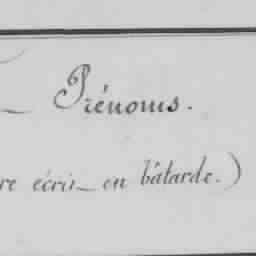 Prénoms.
re écrit en bâtarde.)